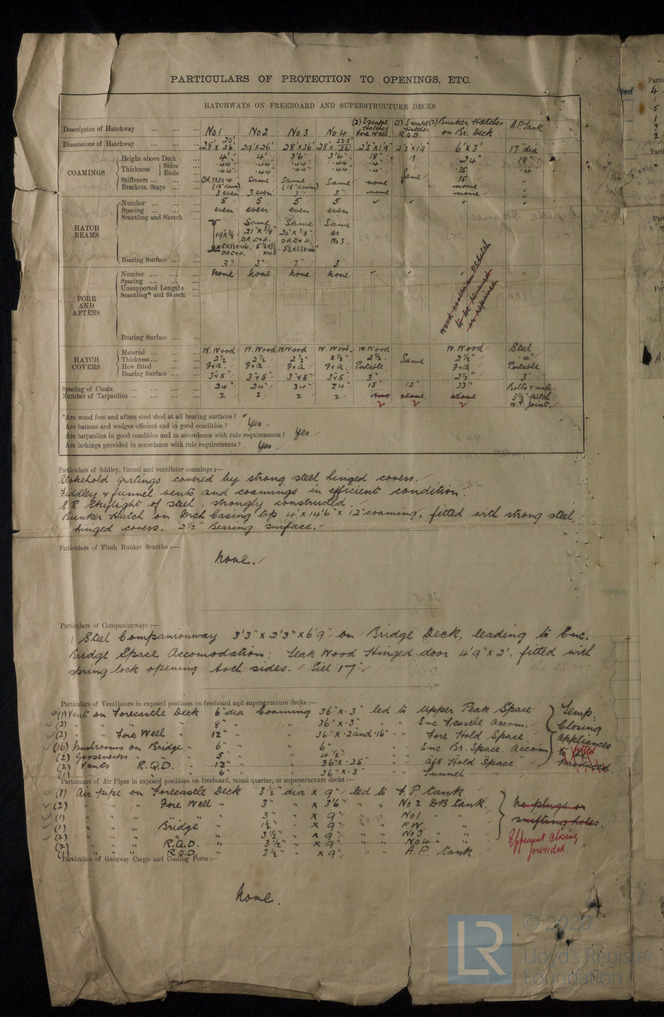 PARTICULARS OF PROTECTION TO OPENINGS, ETC.
HATCHWAYS ON FREEBOARD AND SUPERSTRUCTURE DECKS
Description of Hatchway No 1 No 2 No 3 No 4 (2) Escape Hatches Fore Well (2) Escape Hatches R.Q.D. (3) Bunker Hatches on Br. Deck A.P. Tank
Dimensions of Hatchway 28' x 26' 29' x 26' 28' x 26' 28' x 26' 2'3" x 1'9" 2'3" x 1'9" 6' x 3' 17" dia
COAMINGS
Height above Deck 4' 4' 3'6" 3'6" 18" 18 24" 18"
Thickness Sides .44 .44 .44 .44 .35
Ends .44 .44 .44 .44
Stiffeners Same Same Same none Same
Brackets, Stays 3 even 3 even 3 3 none none
HATCH BEAMS
Number 5 5 5 5
Spacing even even even even
Scantling and Sketch Same Same Same as No 3.
Bearing Surface 3" 3" 3"
FORE AND AFTERS
Number None None None None
Spacing
Unsupported Lengths
Scantling* and Sketch
Bearing Surface
HATCH COVERS
Material W. Wood W. Wood W. Wood W. Wood W. Wood W. Wood Steel
Thickness 2½ 2½ 2½ 2½ 2½ Same 2½" .4"
How fitted F & A F & A F & A F & A Portable F & A Portable
Bearing Surface 3" & 5" 3" & 5" 3" & 5" 3" & 5" 3" 2½"
Spacing of Cleats 24" 24" 24" 24" 15" 15" 33" Bolts & nuts
Number of Tarpaulins 2 2 2 2 none none none 3½" pitch
2 2 2 W.T. joint
*Are wood fore and afters steel shod at all bearing surfaces?
Are battens and wedges efficient and in good condition? Yes
Are tarpaulins in good condition and in accordance with rule requirements? Yes
Are lashings provided in accordance with rule requirements? Yes
Particulars of fiddley, funnel and ventilator coamings :—
Stokehold gratings covered by strong steel hinged covers.
Fiddley & funnel vents and coamings in efficient condition.
E.R. Skylight of steel, strongly constructed.
Bunker Hatch on Mach Casing top 4' x 14'6" x 12" coaming, fitted with strong steel
hinged covers. 2½" Bearing surface.
Particulars of Flush Bunker Scuttles :—
None.
Particulars of Companionways :—
1 Steel Companionway 3'3" x 2'3" x 6'9" on Bridge Deck, leading to Enc.
Bridge Space Accomodation; Teak Wood Hinged door 4'9" x 2', fitted with
spring lock opening both sides. Sill 17"
Particulars of Ventilators in exposed positions on freeboard and superstructure decks :—
(1) Vent on Forecastle Deck 6" dia Coaming 36" x .3" led to Upper Peak Space
(2) " " " 8" " 36" x .3" " " Enc. Fcastle Accom.
(2) " Fore Well 12" " 36" x .2 and .16" " Fore Hold Space
(16) Mushrooms on Bridge 6" 6" " Enc Br. Space. Accom
(2) Goosenecks " 5" 4½"
(2) Vents R.Q.D. 12" 36" x .25 " Aft Hold Space
" " 6" 36" x .3" " Tunnel
Temp. Closing appliances to be produced
Particulars of Air Pipes in exposed positions on freeboard, raised quarter, or superstructure decks :—
(1) Air pipe on Forecastle Deck 3½" dia x 9" led to F.P. tank
(2) " " Fore Well 3" x 3'6" " No 2 DB tank
(1) " " " 3" x 9" " No 1
(1) " " Bridge 1½" x 9" " F.W.
(2) " " " 3½" x 9" " No 3
(2) " " R.Q.D. 3½" x 9" " No 4
(1) " " R.Q.D. 3½" x 9" A.P. tank
No plugs or snifting holes.
Efficient closing provided.
Particulars of Gangway Cargo and Coaling Ports :—
None.
LR
© 2020
Lloyd's Register
Foundation